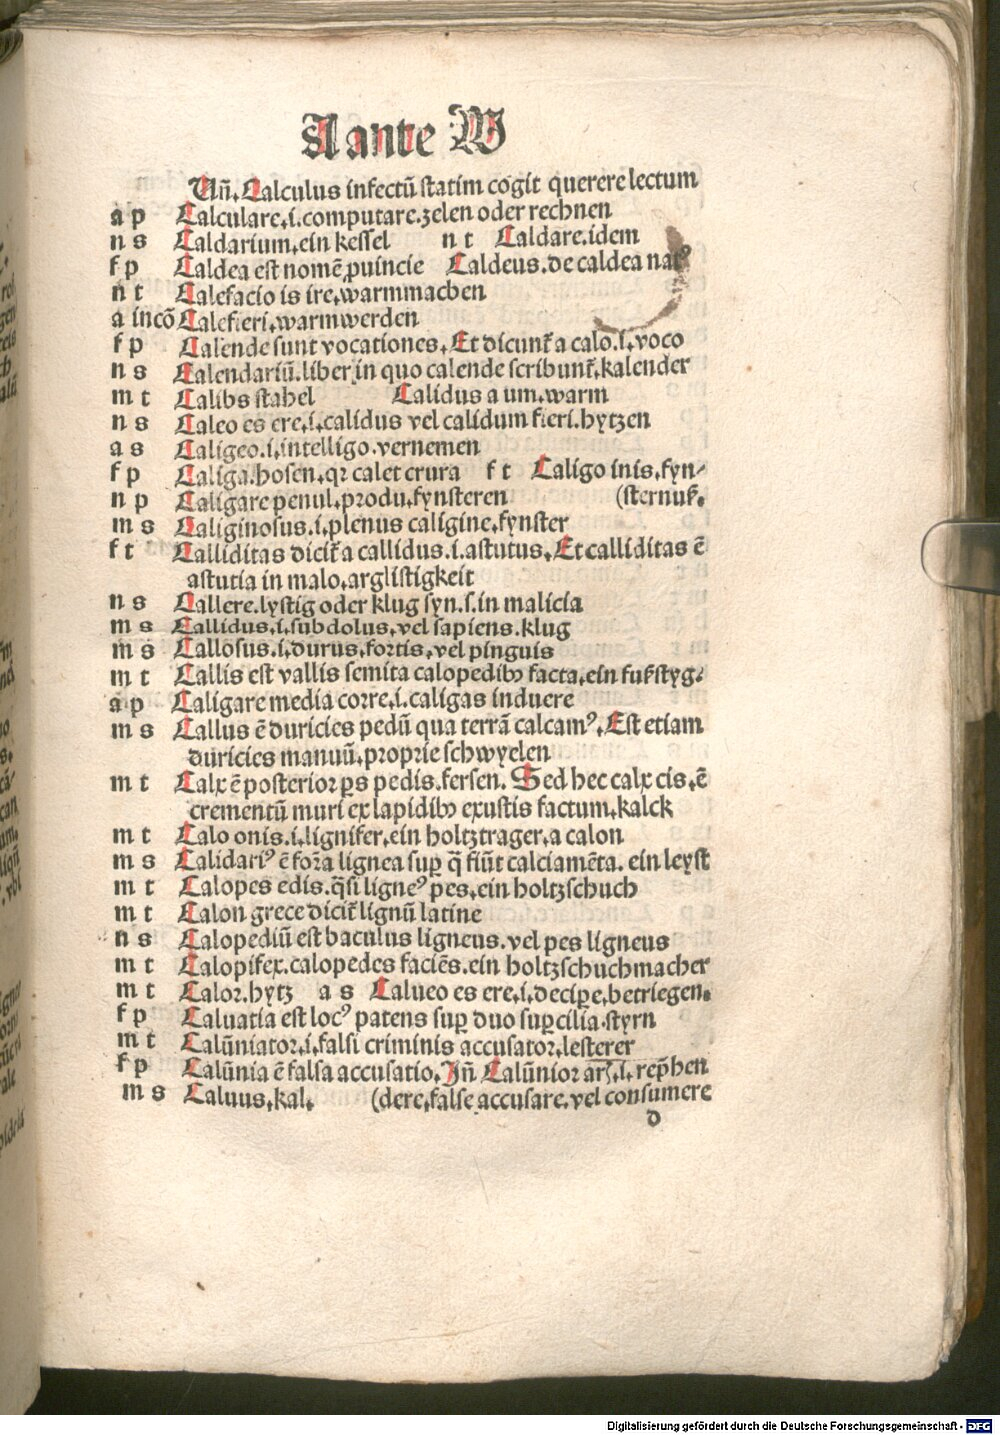 A ante M
Uñ. Calculus infectū statim cogit querere lectum
a p Calculare.i.computare.zelen oder rechnen
n s Caldarium.ein kessel n t Caldare.idem
f p Caldea est nomē ꝓuincie Caldeus.de caldea natꝰ
n t Calefacio is ire.warmmachen
a incō Calefieri.warmwerden
f p Calende sunt vocationes. Et dicunt᷑ a calo.i.voco
n s Calendariū.liber in quo calende scribunt᷑.kalender
m t Calibs stahel Calidus a um.warm
n s Caleo es ere.i.calidus vel calidum fieri.hytzen
a s Caligeo.i.intelligo.vernemen
f p Caliga.hosen.qꝛ calet crura f t Caligo inis.fyn-
n p Caligare penul.produ.fynsteren (sternuß.
m s Caliginosus.i.plenus caligine.fynster
f t Calliditas dicit᷑ a callidus.i.astutus. Et calliditas ē
astutia in malo.arglistigkeit
n s Callere.lystig oder klug syn.s.in malicia
m s Callidus.i.subdolus.vel sapiens.klug
m s Callosus.i.durus.fortis.vel pinguis
m t Callis est vallis semita calopedibꝫ facta.ein fußstyg.
a p Caligare media corre.i.caligas induere
m s Callus ē duricies pedū qua terrā calcamꝰ. Est etiam
duricies manuū.proprie schwyelen
m t Calx ē posterior ꝑs pedis.fersen. Sed hec calx cis.ē
crementū muri ex lapidibꝫ exustis factum.kalck
m t Calo onis.i.lignifer.ein holtztrager.a calon
m s Calidariꝰ ē forma lignea suꝑ q̄ fiūt calciamēta. ein leyst
m t Calopes edis.q̄si ligneꝰ pes.ein holtzschuch
m t Calon grece dicit᷑ lignū latine
n s Calopediū est baculus ligneus.vel pes ligneus
m t Calopifex.calopedes faciēs.ein holtzschuchmacher
m t Calor.hytz a s Calueo es ere.i.decipe.betriegen.
f p Caluatia est locꝰ patens suꝑ duo suꝑcilia.styrn
m t Calūniator.i.falsi criminis accusator.lesterer
f p Calūnia ē falsa accusatio. Iñ Calūnior aris.i.rep̄hen
m s Caluus.kal. (dere.false accusare.vel consumere
d
Digitalisierung gefördert durch die Deutsche Forschungsgemeinschaft - DFG